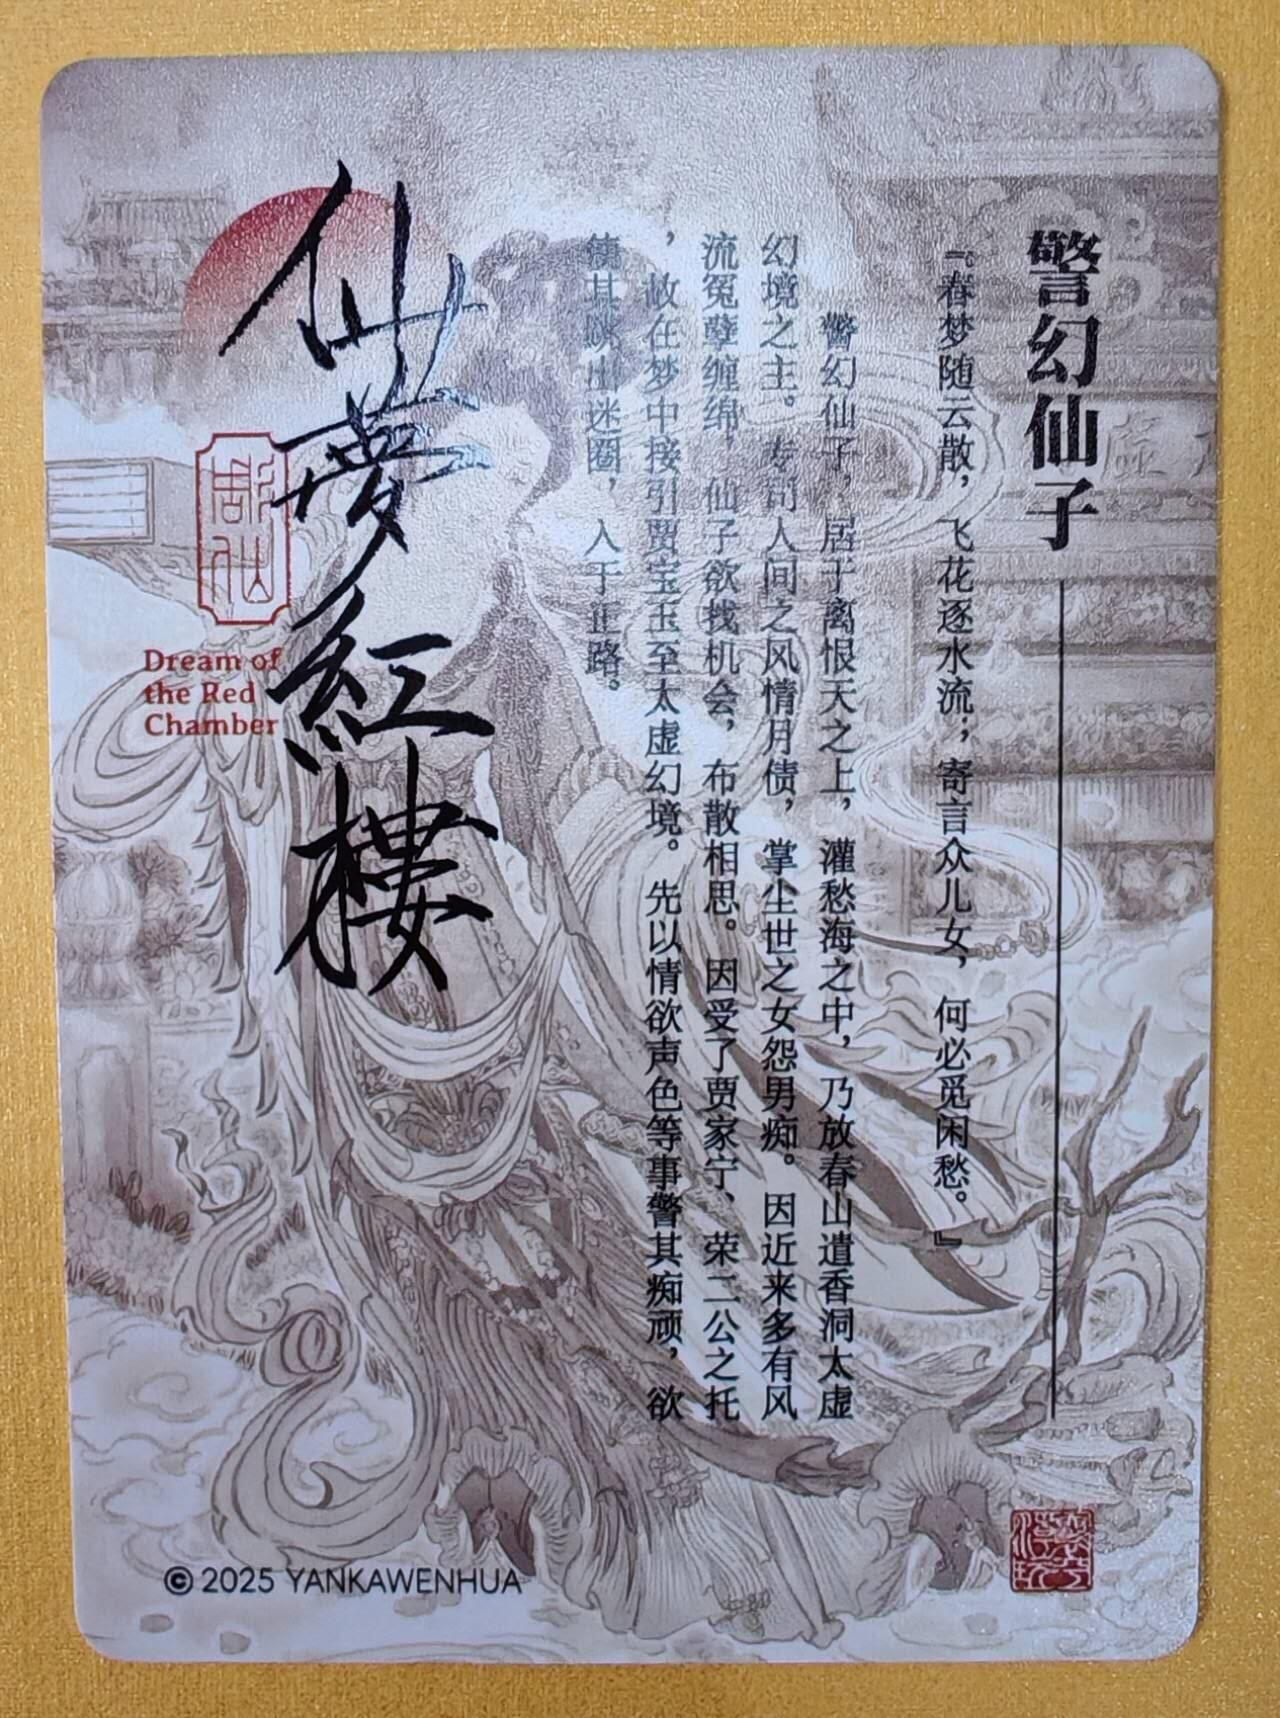 警幻仙子
『春梦随云散，飞花逐水流；寄言众儿女，何必觅闲愁。』
警幻仙子，居于离恨天之上，灌愁海之中，乃放春山遣香洞太虚
幻境之主。专司人间之风情月债，掌尘世之女怨男痴。因近来多有风
流冤孽缠绵，仙子欲找机会，布散相思。因受了贾家宁、荣二公之托
，故在梦中接引贾宝玉至太虚幻境。先以情欲声色等事警其痴顽，欲
使其跳出迷圈，入于正路。
仙夢紅樓
Dream of
the Red
Chamber
© 2025 YANKAWENHUA